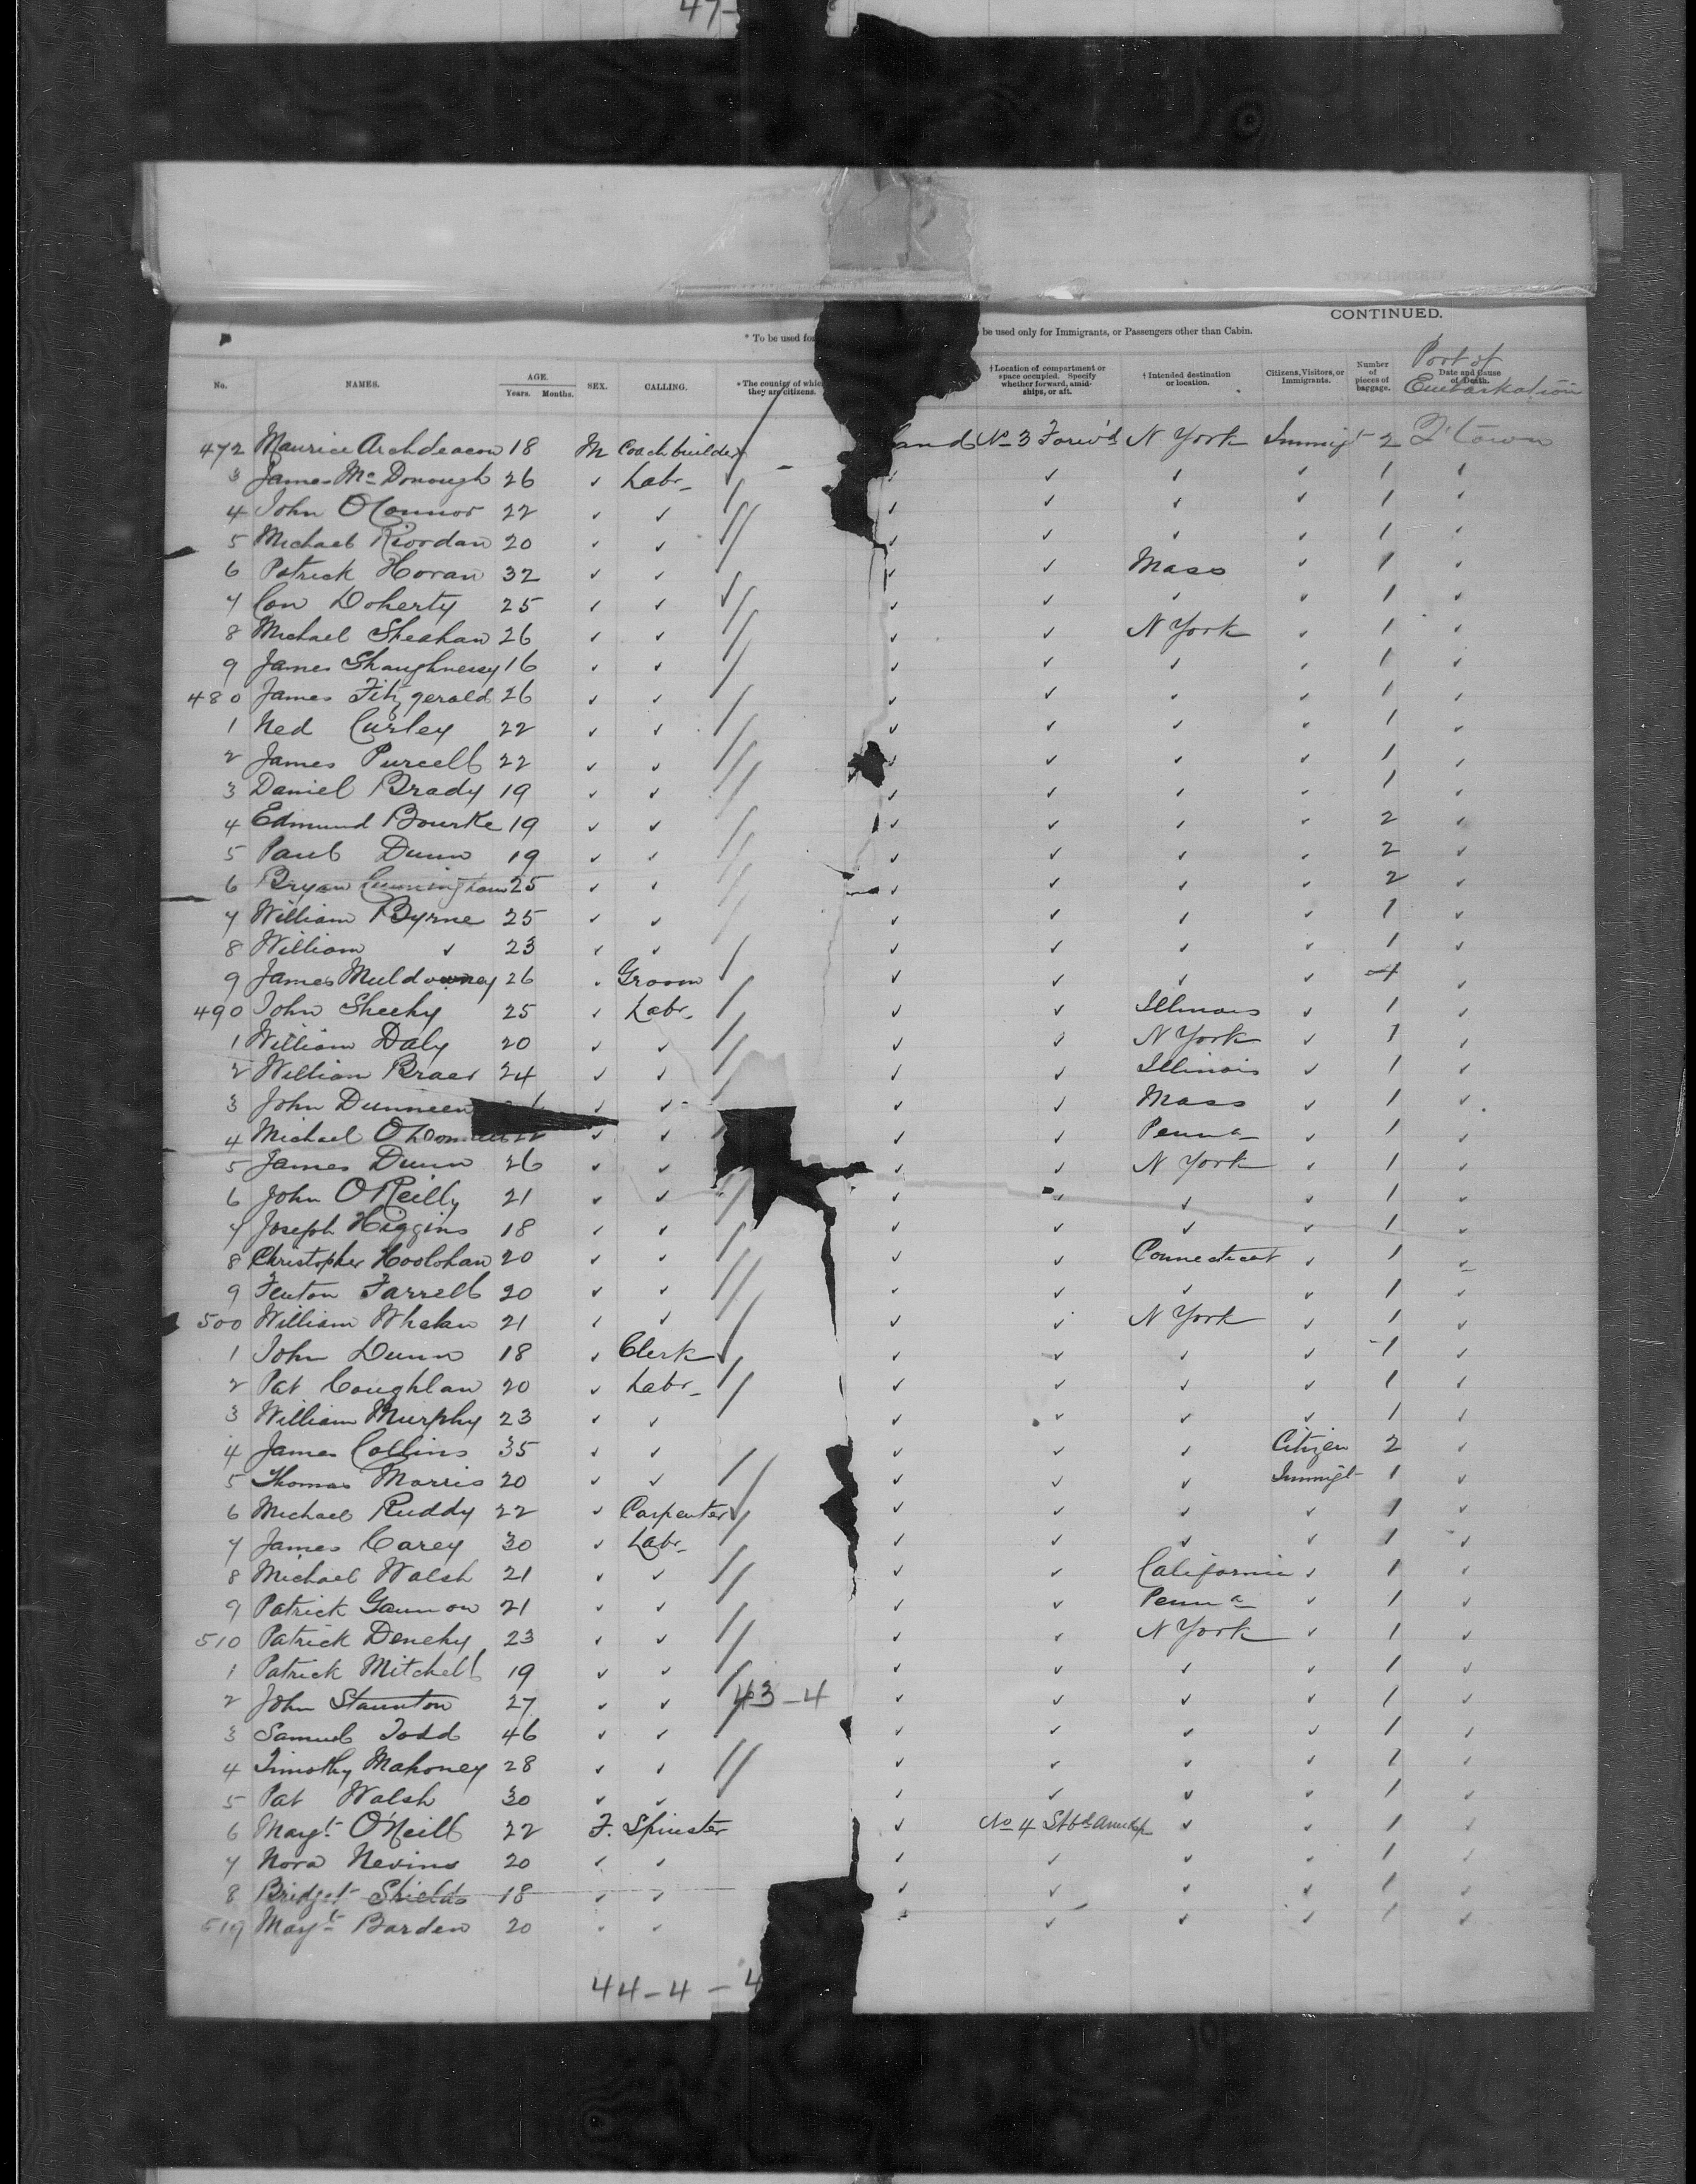 47-
CONTINUED.
* To be used for be used only for Immigrants, or Passengers other than Cabin.
No. NAMES. AGE. Years. Months. SEX. CALLING. * The country of which they are citizens. † Location of compartment or space occupied. Specify whether forward, amid-ships, or aft. † Intended destination or location. Citizens, Visitors, or Immigrants. Number of pieces of baggage. Date and Cause of Death. Port of Embarkation
472 Maurice Archdeacon 18 M Coachbuilder land No 3 Forw'd N York Immigt 2 Q'town
3 James Mc Donough 26 ✓ Labr ✓ ✓ ✓ ✓ 1 ✓
4 John O'Connor 22 ✓ ✓ ✓ ✓ ✓ ✓ 1 ✓
5 Michael Riordan 20 ✓ ✓ ✓ ✓ ✓ ✓ 1 ✓
6 Patrick Horan 32 ✓ ✓ ✓ ✓ Mass ✓ 1 ✓
7 Con Doherty 25 ✓ ✓ ✓ ✓ ✓ ✓ 1 ✓
8 Michael Sheahan 26 ✓ ✓ ✓ ✓ N York ✓ 1 ✓
9 James Shaughnessy 16 ✓ ✓ ✓ ✓ ✓ ✓ 1 ✓
480 James Fitzgerald 26 ✓ ✓ ✓ ✓ ✓ ✓ 1 ✓
1 Ned Curley 22 ✓ ✓ ✓ ✓ ✓ ✓ 1 ✓
2 James Purcell 22 ✓ ✓ ✓ ✓ ✓ ✓ 1 ✓
3 Daniel Brady 19 ✓ ✓ ✓ ✓ ✓ ✓ 1 ✓
4 Edmund Bourke 19 ✓ ✓ ✓ ✓ ✓ ✓ 2 ✓
5 Paul Dunn 19 ✓ ✓ ✓ ✓ ✓ ✓ 2 ✓
6 Bryan Cunningham 25 ✓ ✓ ✓ ✓ ✓ ✓ 2 ✓
7 William Byrne 25 ✓ ✓ ✓ ✓ ✓ ✓ 1 ✓
8 William ✓ 23 ✓ ✓ ✓ ✓ ✓ ✓ 1 ✓
9 James Muldowney 26 ✓ Groom ✓ ✓ ✓ ✓ ✓
490 John Sheehy 25 ✓ Labr ✓ ✓ Illinois ✓ 1 ✓
1 William Daly 20 ✓ ✓ ✓ ✓ N York ✓ 1 ✓
2 William 24 ✓ ✓ ✓ ✓ Illinois ✓ 1 ✓
3 John Dunneen ✓ ✓ ✓ ✓ Mass ✓ 1 ✓
4 Michael O'Donnell 22 ✓ ✓ ✓ ✓ Penna ✓ 1 ✓
5 James Dunn 26 ✓ ✓ ✓ ✓ N York ✓ 1 ✓
6 John O'Reilly 21 ✓ ✓ ✓ ✓ ✓ ✓ 1 ✓
7 Joseph Higgins 18 ✓ ✓ ✓ ✓ ✓ ✓ 1 ✓
8 Christopher Hoolohan 20 ✓ ✓ ✓ ✓ Connecticut ✓ 1 ✓
9 Fenton Farrell 20 ✓ ✓ ✓ ✓ ✓ ✓ 1 ✓
500 William Whelan 21 ✓ ✓ ✓ ✓ N York ✓ 1 ✓
1 John Dunn 18 ✓ Clerk ✓ ✓ ✓ ✓ 1 ✓
2 Pat Coughlan 20 ✓ Labr ✓ ✓ ✓ ✓ 1 ✓
3 William Murphy 23 ✓ ✓ ✓ ✓ ✓ ✓ 1 ✓
4 James Collins 35 ✓ ✓ ✓ ✓ ✓ Citizen 2 ✓
5 Thomas Morris 20 ✓ ✓ ✓ ✓ ✓ Immigt 1 ✓
6 Michael Ruddy 22 ✓ Carpenter ✓ ✓ ✓ ✓ 1 ✓
7 James Carey 30 ✓ Labr ✓ ✓ ✓ ✓ 1 ✓
8 Michael Walsh 21 ✓ ✓ ✓ ✓ California ✓ 1 ✓
9 Patrick Gannon 21 ✓ ✓ ✓ ✓ Penna ✓ 1 ✓
510 Patrick Denehy 23 ✓ ✓ ✓ ✓ N York ✓ 1 ✓
1 Patrick Mitchell 19 ✓ ✓ ✓ ✓ ✓ ✓ 1 ✓
2 John Staunton 27 ✓ ✓ 43-4 ✓ ✓ ✓ ✓ 1 ✓
3 Samuel Todd 46 ✓ ✓ ✓ ✓ ✓ 1 ✓
4 Timothy Mahoney 28 ✓ ✓ ✓ ✓ ✓ ✓ 2 ✓
5 Pat Walsh 30 ✓ ✓ ✓ ✓ ✓ ✓ 1 ✓
6 Margt O'Neill 22 F. Spinster ✓ No 4 ✓ ✓ 1 ✓
7 Nora Nevins 20 ✓ ✓ ✓ ✓ ✓ ✓ 1 ✓
8 Bridget Shields 18 ✓ ✓ ✓ ✓ ✓ ✓ 1 ✓
519 Margt Barden 20 ✓ ✓ ✓ ✓ ✓ ✓ 1 ✓
44-4-4